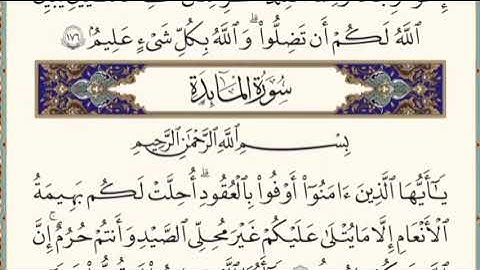 ٱللَّهُ لَكُمْ أَن تَضِلُّوا۟ ۗ وَٱللَّهُ بِكُلِّ شَىْءٍ عَلِيمٌۢ ١٧٦
سُورَةُ المَائِدَةِ
بِسْمِ ٱللَّهِ ٱلرَّحْمَٰنِ ٱلرَّحِيمِ
يَٰٓأَيُّهَا ٱلَّذِينَ ءَامَنُوٓا۟ أَوْفُوا۟ بِٱلْعُقُودِ ۚ أُحِلَّتْ لَكُم بَهِيمَةُ
ٱلْأَنْعَٰمِ إِلَّا مَا يُتْلَىٰ عَلَيْكُمْ غَيْرَ مُحِلِّى ٱلصَّيْدِ وَأَنتُمْ حُرُمٌ ۗ إِنَّ